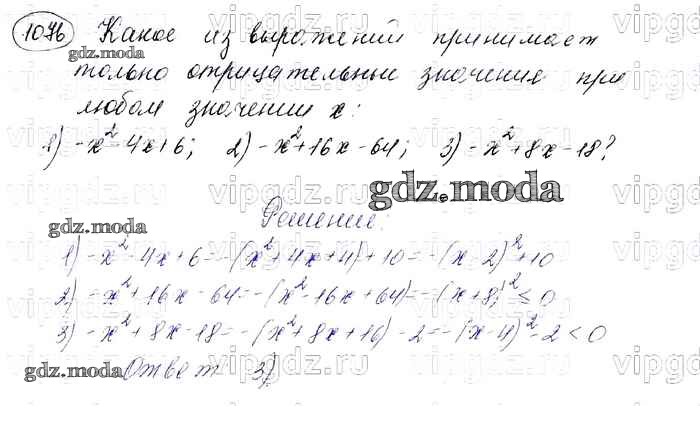 1076 Какое из выражений принимает
только отрицательные значения при
любом значении x:
1) -x²-4x+6; 2) -x²+16x-64; 3) -x²+8x-18?
Решение.
1) -x²-4x+6=-(x²+4x+4)+10=-(x-2)²+10
2) -x²+16x-64=-(x²-16x+64)=-(x+8)²≤0
3) -x²+8x-18=-(x²+8x+16)-2=-(x-4)²-2<0
Ответ 3)
gdz.moda
gdz.moda
gdz.moda
gdz.moda
vipgdz.ru